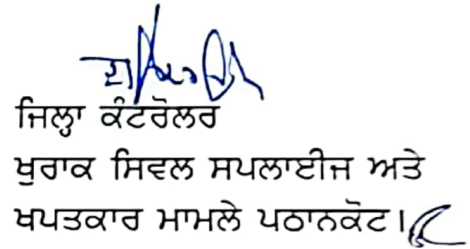 ਜਿਲ੍ਹਾ ਕੰਟਰੋਲਰ
ਖੁਰਾਕ ਸਿਵਲ ਸਪਲਾਈਜ ਅਤੇ
ਖਪਤਕਾਰ ਮਾਮਲੇ ਪਠਾਨਕੋਟ।